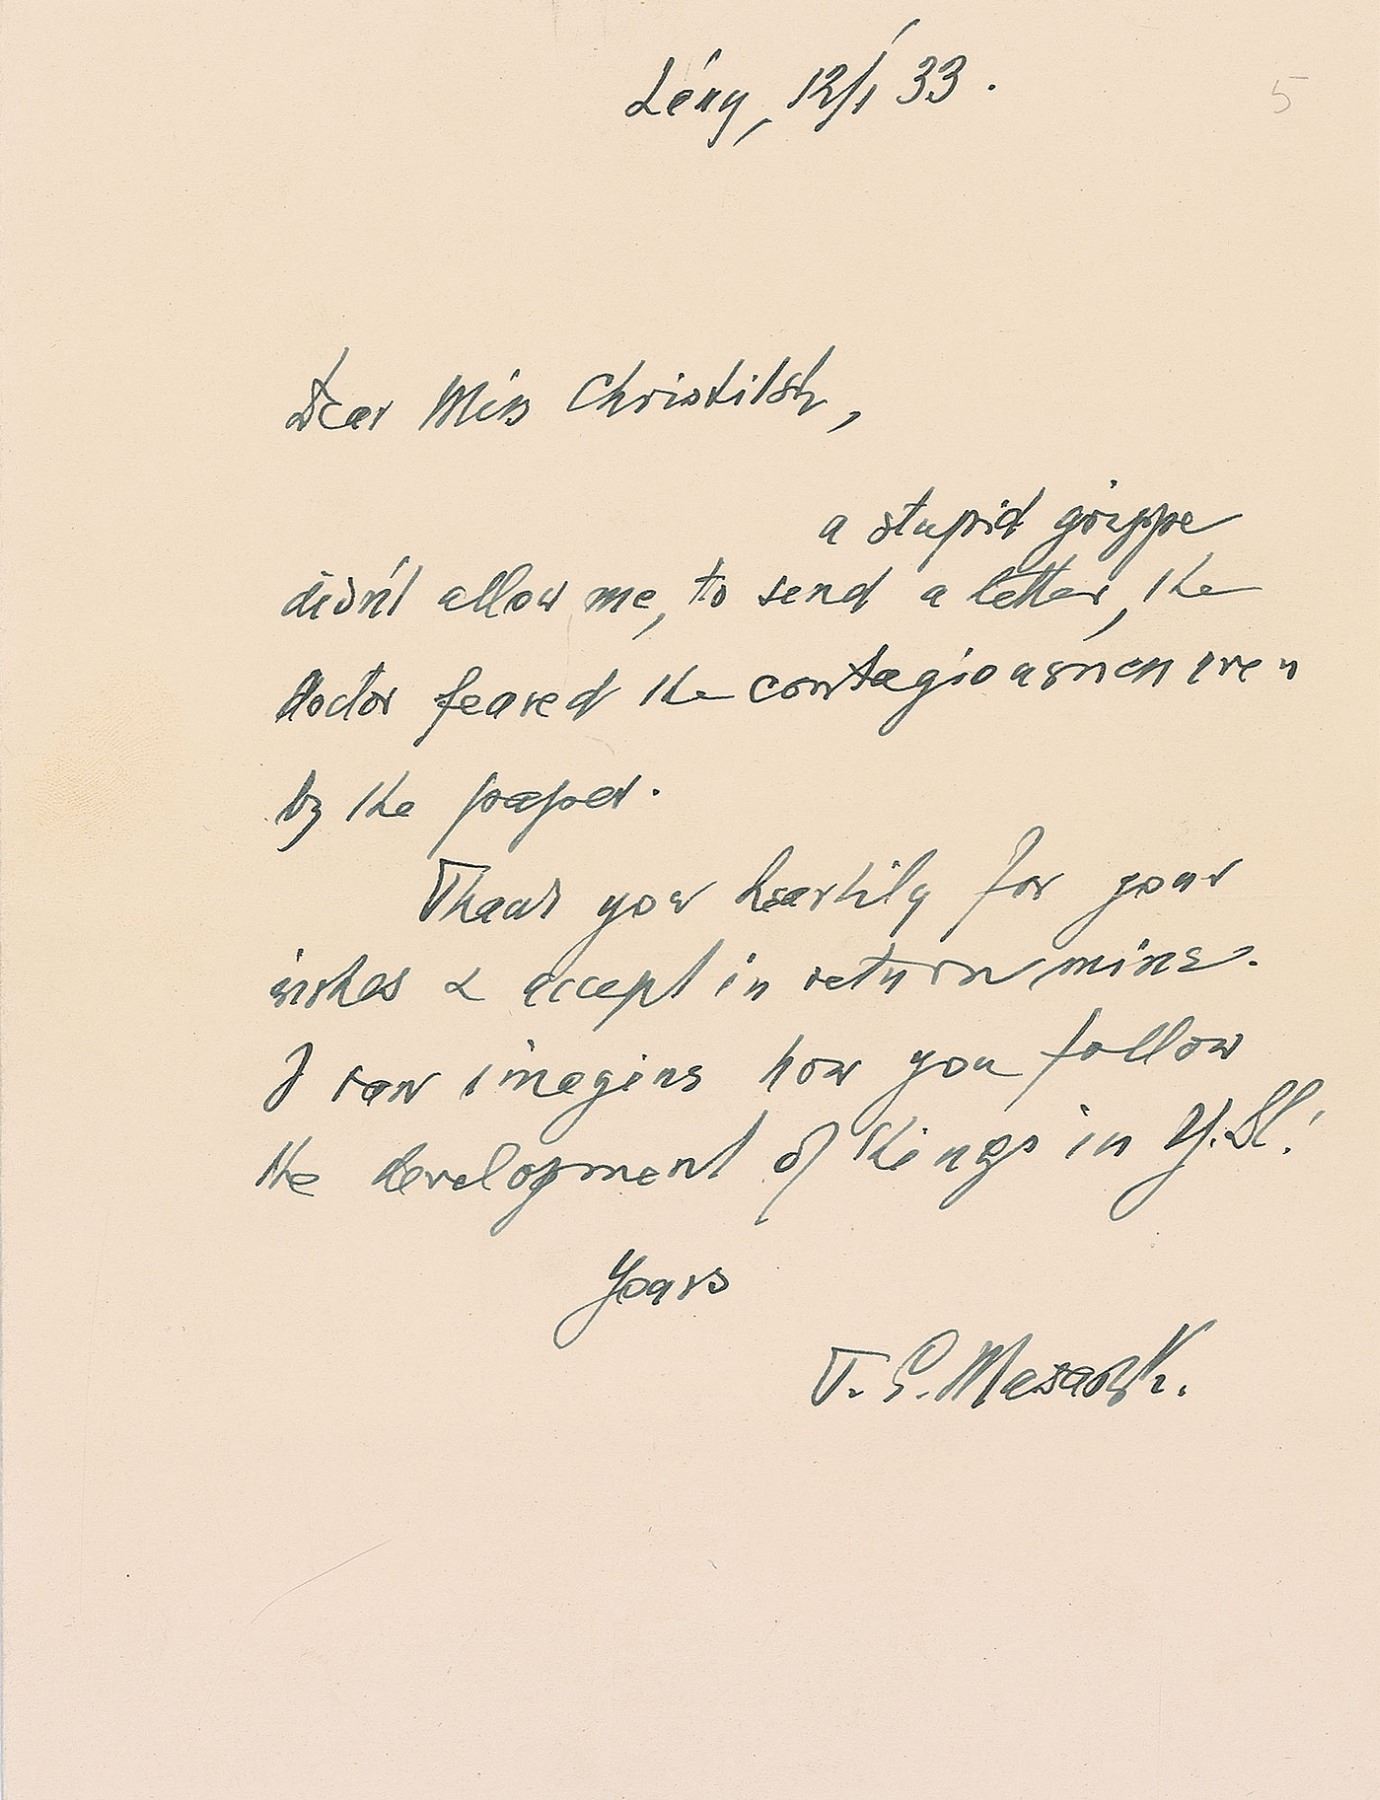 Lány, 12/1 33.
5
Dear Miss Christitsh,
a stupid grippe
didn't allow me, to send a letter, the
doctor feared the contagiousness even
by the paper.
Thank you heartily for your
wishes & accept in return mine.
I can imagine how you follow
the development of things in Y.Sl.!
Yours
T. G. Masaryk.